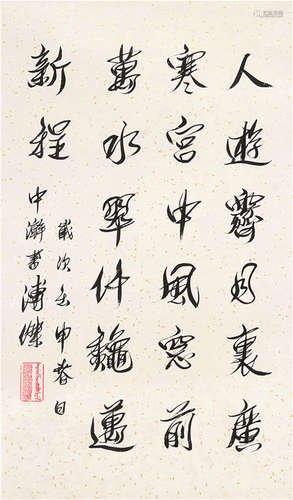 人遊霽月裏廣
寒宮中風窓前
萬水翠竹龝邁
新程
歲次壬申春日
中瀚書 溥傑